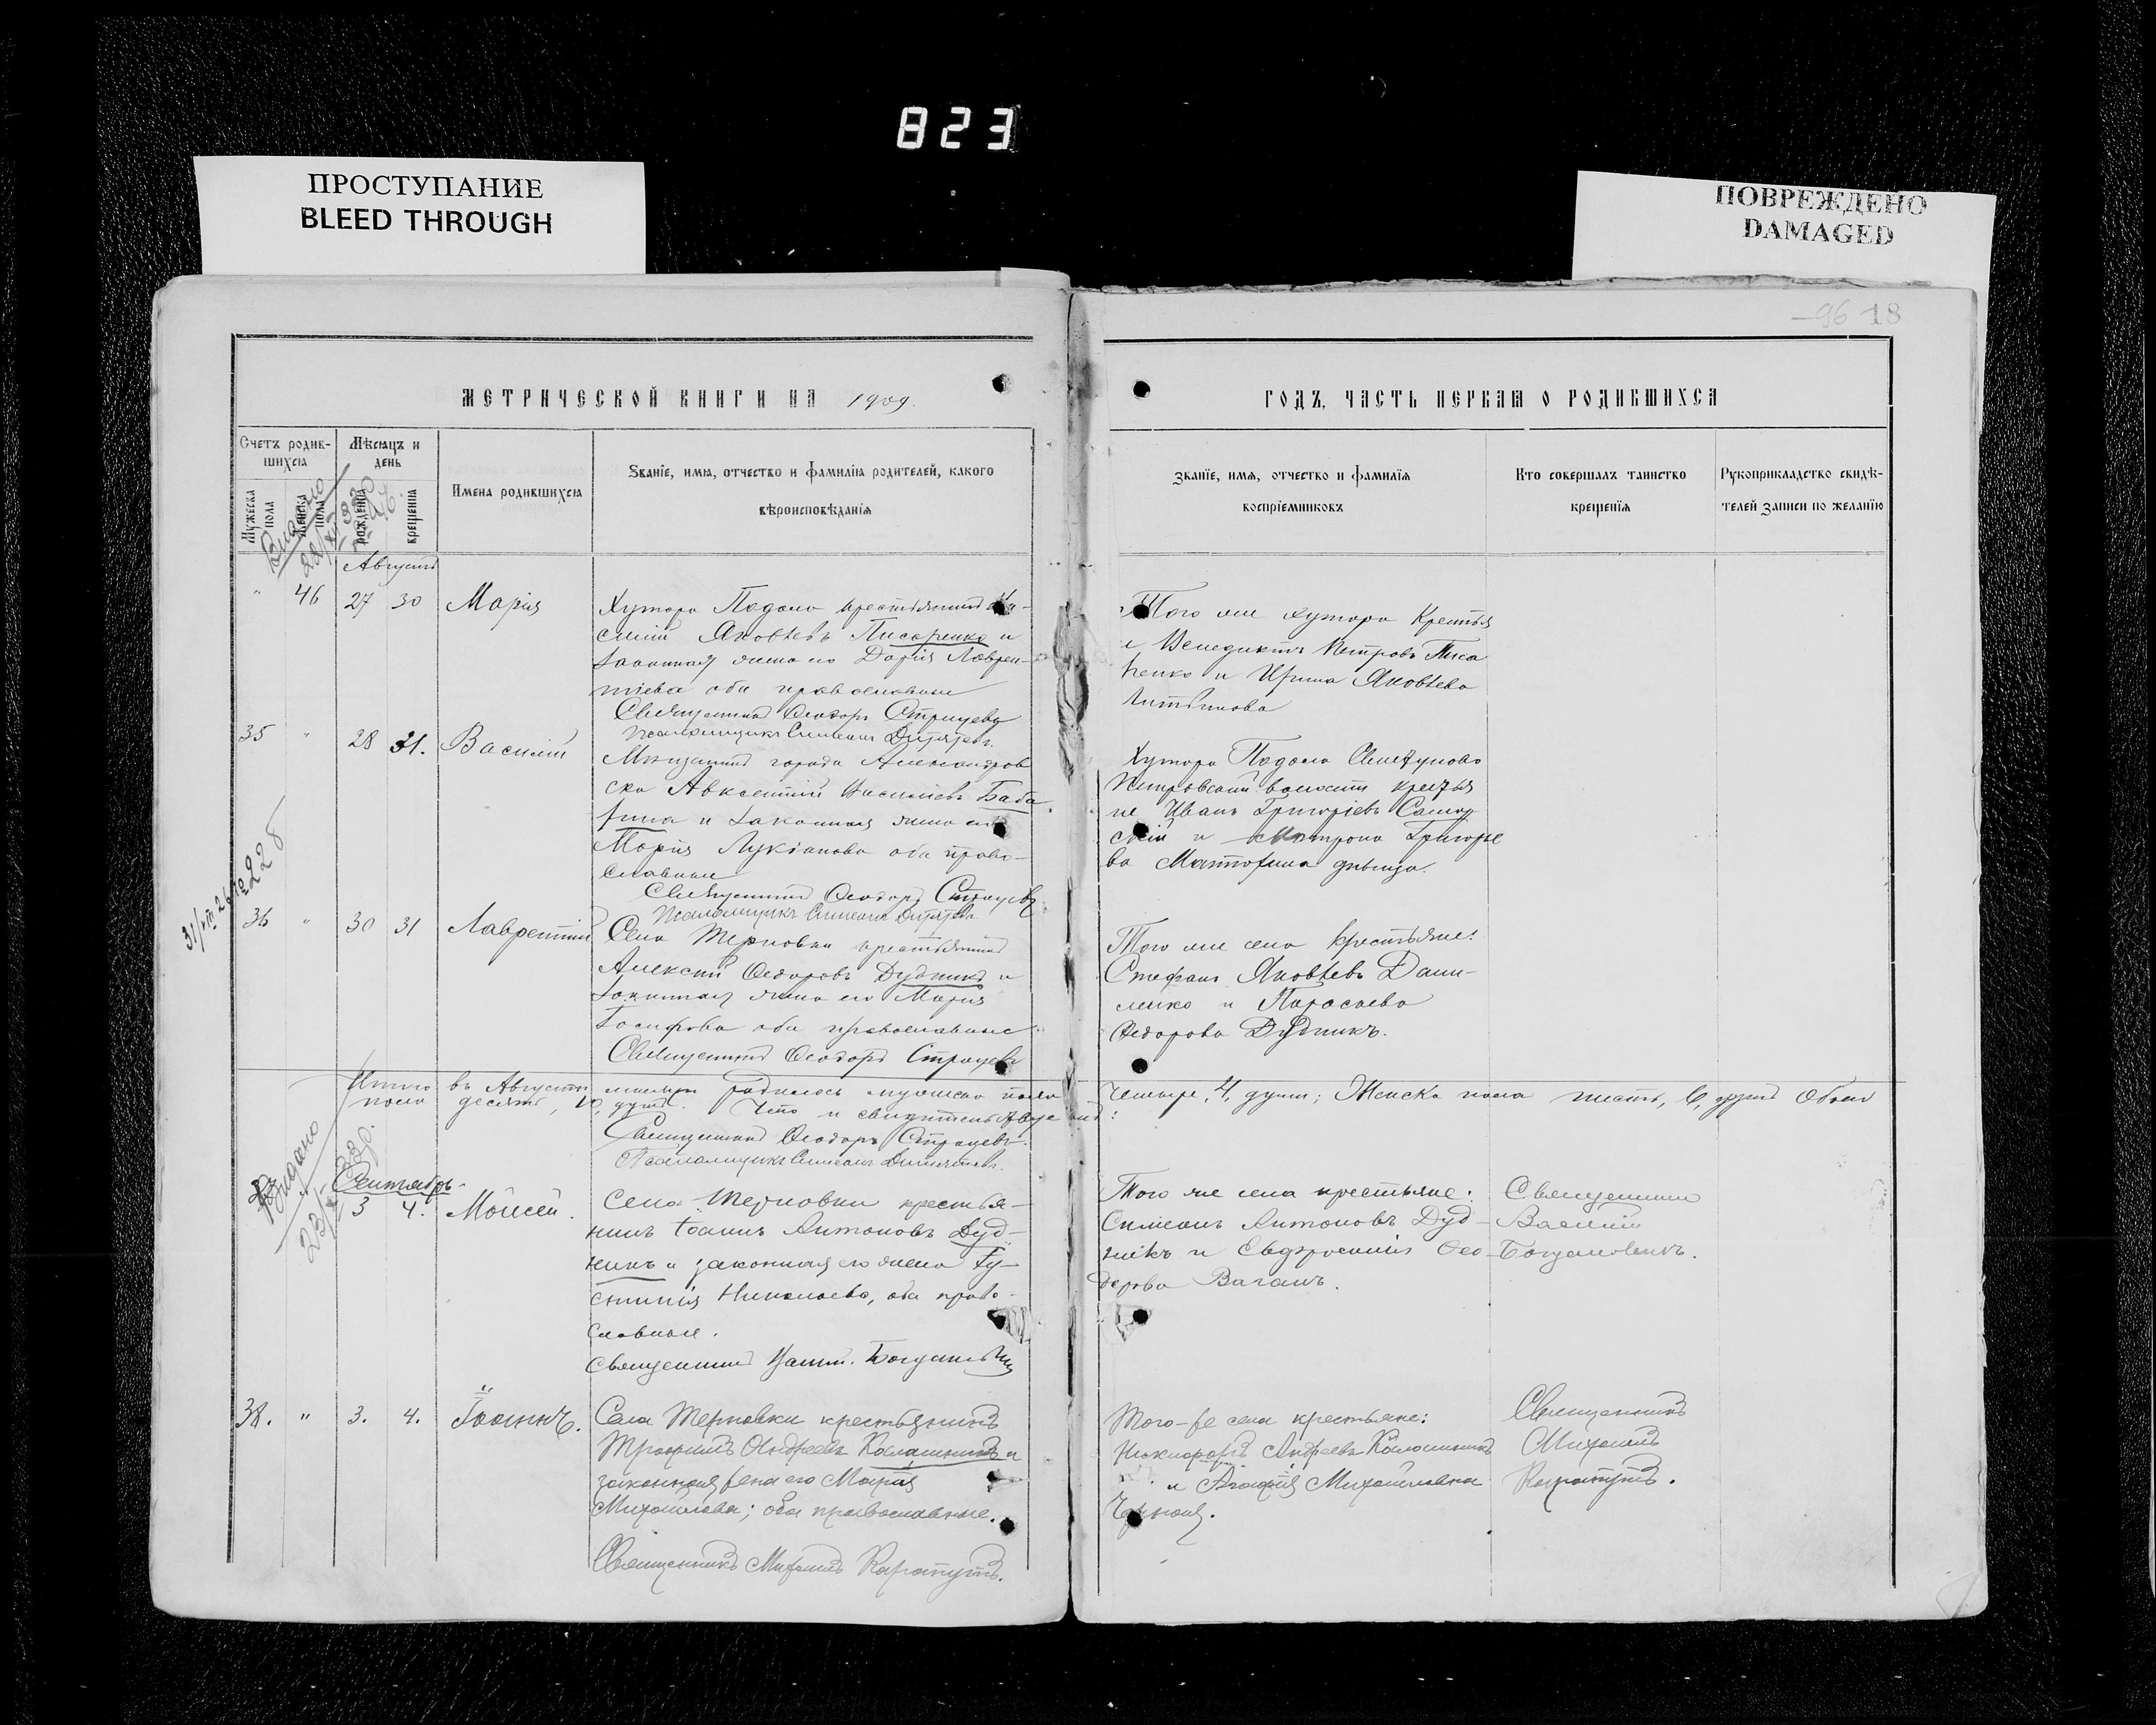 823
ПРОСТУПАНИЕ
BLEED THROUGH
ПОВРЕЖДЕНО
DAMAGED
96 18
МЕТРИЧЕСКОЙ КНИГИ НА 1909
ГОДЪ, ЧАСТЬ ПЕРВАЯ О РОДИВШИХСЯ
Счетъ родив-
шихся
Мужеска пола
Женска пола
Мѣсяцъ и
день
рожденія
крещенія
Имена родившихся
Званіе, имя, отчество и фамилія родителей, какого
вѣроисповѣданія
Званіе, имя, отчество и фамилія
воспріемниковъ
Кто совершалъ таинство
крещенія
Рукоприкладство свидѣ-
телей записи по желанію
Выдано
Августъ
" 46 27 30 Марія
Хутора Подома крестьянинъ
Яковлевъ Писаренко и
законная жена его Дарія Лаврен-
тіева оба православные
Священникъ Ѳеодоръ Страцевъ
Псаломщикъ Симеонъ
Того же хутора Крестья
Венедиктъ Петровъ Писа
ренко и Ирина Яковлева
Литвинова
35 " 28 31. Василій
Мѣщанинъ города Александров
ска Авксентій Василіевъ Баба
рина и законная жена его
Марія Лукіанова оба право-
славные
Священникъ Ѳеодоръ Страцевъ
Псаломщикъ Симеонъ
Хутора Подома
Петровской волости крестья
не Иванъ Григоріевъ
скій и Матрона Григорье
ва дѣвица.
36 " 30 31 Лаврентій
Села Терновки крестьянинъ
Алексій Ѳедоровъ Дудникъ и
законная жена его Марія
Іосифова оба православные
Священникъ Ѳеодоръ Страцевъ
Того же села крестьяне:
Стефанъ Яковлевъ Дани-
ленко и Параскева
Ѳедорова Дудникъ.
Итого въ Августѣ мѣсяцѣ родилось мужеска пола четыре, 4, души; Женска пола шесть, 6, душъ Обоего
пола десять, 10, душъ. Что и свидѣтельствуемъ:
Священникъ Ѳеодоръ Страцевъ
Псаломщикъ Симеонъ
Выдано
Сентябрь.
" 3 4. Моисей.
Села Терновки крестья-
нинъ Іоаннъ Антоновъ Дуд-
никъ и законная его жена Іу-
стинія Николаева, оба право-
славные.
Священникъ Богдановичъ
Того же села крестьяне:
Симеонъ Антоновъ Дуд-
никъ и Евфросинія Ѳео-
дорова Ваганъ.
Священникъ
Василій
Богдановичъ.
38. " 3. 4. Іоаннъ.
Села Терновки крестьянинъ
Трофимъ Андреевъ Калашникъ и
законная жена его Марія
Михайлова; оба православные.
Священникъ Михаилъ Карапутъ.
Того-же села крестьяне:
Никифоръ Андреевъ Калашникъ
и Агафія Михайловна
Черная.
Священникъ
Михаилъ
Карапутъ.